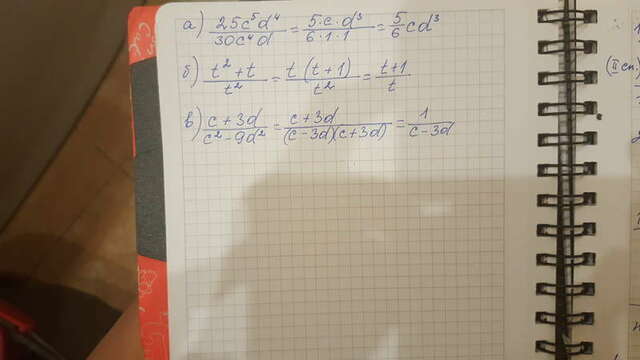 а) 25c⁵d⁴/30c⁴d = 5·c·d³/6·1·1 = 5/6 cd³
б) t²+t/t² = t(t+1)/t² = t+1/t
в) c+3d/c²-9d² = c+3d/(c-3d)(c+3d) = 1/c-3d
(II сп.)